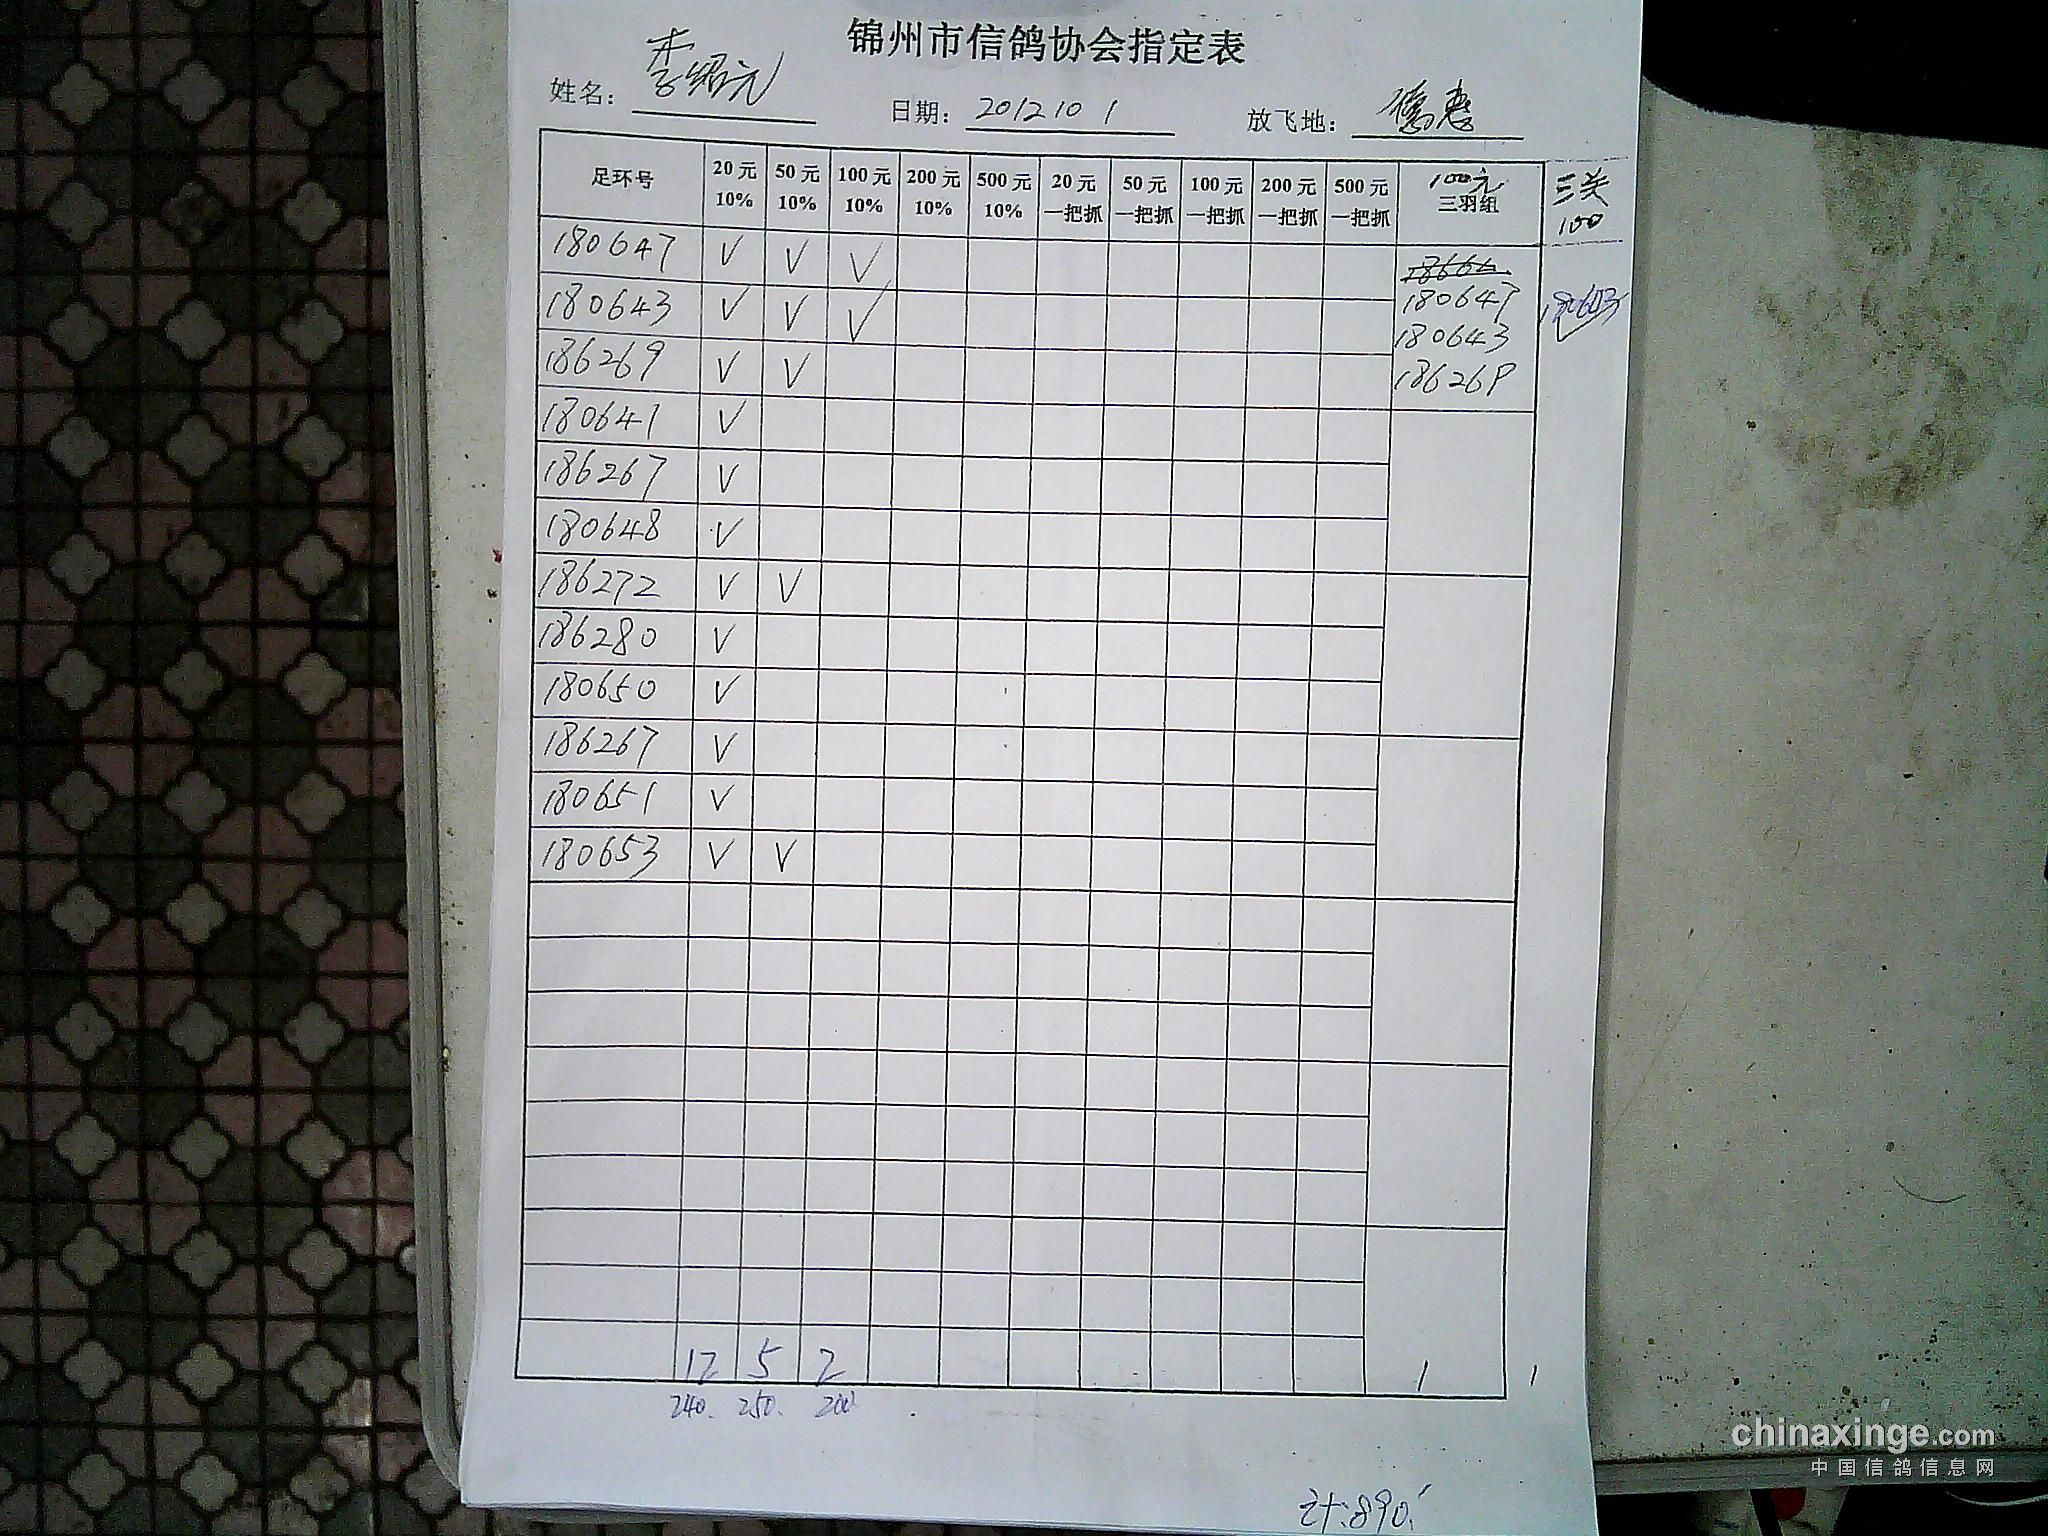 锦州市信鸽协会指定表
姓名：李绍元 日期：2012 10 1 放飞地：德惠
足环号 20元 10% 50元 10% 100元 10% 200元 10% 500元 10% 20元 一把抓 50元 一把抓 100元 一把抓 200元 一把抓 500元 一把抓 100元 三羽组 三关 100
180647 √ √ √
180643 √ √ √
186269 √ √
180641 √
186267 √
180648 √
186272 √ √
186280 √
180650 √
186267 √
180651 √
180653 √ √
180647
180643
186269
12 5 2 1 1
240. 250. 200
计:890.
chinaxinge.com
中国信鸽信息网